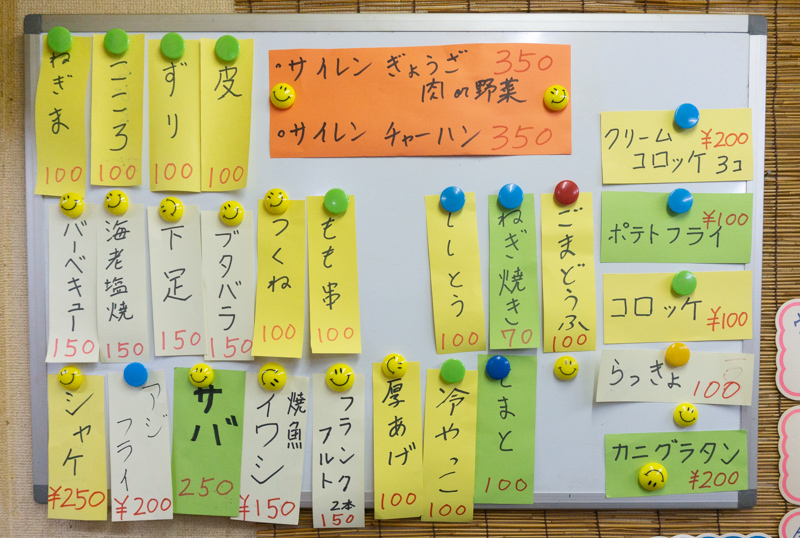 ねぎま
100
こころ
100
ずり
100
皮
100
・サイレン ぎょうざ 350
肉or野菜
・サイレン チャーハン 350
クリーム ¥200
コロッケ 3コ
バーベキュー
150
海老塩焼
150
下足
150
ブタバラ
150
つくね
100
もも串
100
ししとう
100
ねぎ焼き
70
ごまどうふ
100
¥100
ポテトフライ
コロッケ
¥100
らっきょ 100
シャケ
¥250
アジ
フライ
¥200
サバ
250
焼魚
イワシ
¥150
フランク
フルト
2本
150
厚あげ
100
冷やっこ
100
とまと
100
カニグラタン
¥200